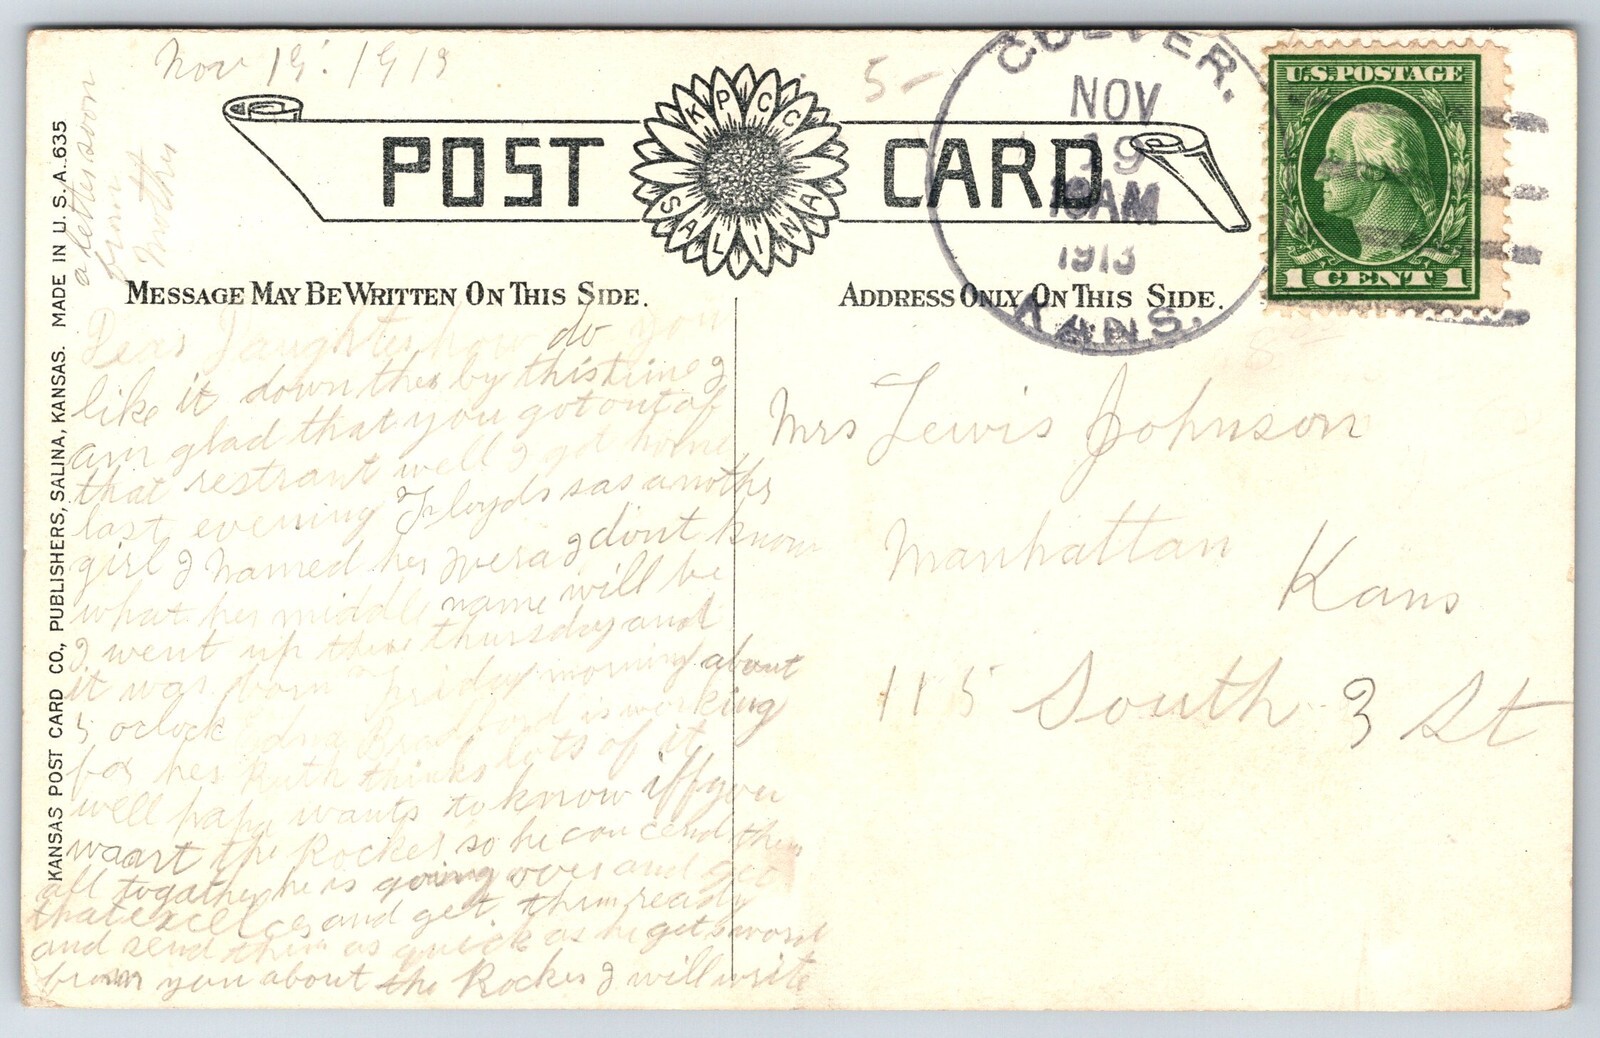 Nov 19. 1913
5-
KPCC
SALINA
POST CARD
CULVER.
NOV
19
10AM
1913
KANS.
U.S. POSTAGE
1 CENT 1
MESSAGE MAY BE WRITTEN ON THIS SIDE.
ADDRESS ONLY ON THIS SIDE.
KANSAS POST CARD CO., PUBLISHERS, SALINA, KANSAS. MADE IN U. S. A. 635
Dear Daughter how do you
like it down ther by this time I
am glad that you got out of
that restrant well I got home
last evening Floyds has another
girl I named her Wera I dont know
what her middle name will be
I went up there thursday and
it was born Friday morning about
5 oclock Edna Bradford is working
for her Ruth thinks lots of it
well papa wants to know iff you
waart the Rocker so he can cend them
all togather he is going over and get
that excelcer and get them ready
and send them as quick as he gets word
from you about the Rocker I will write
a letter soon
from
Mother
Mrs Lewis Johnson
Manhattan
Kans
115 South 3 St